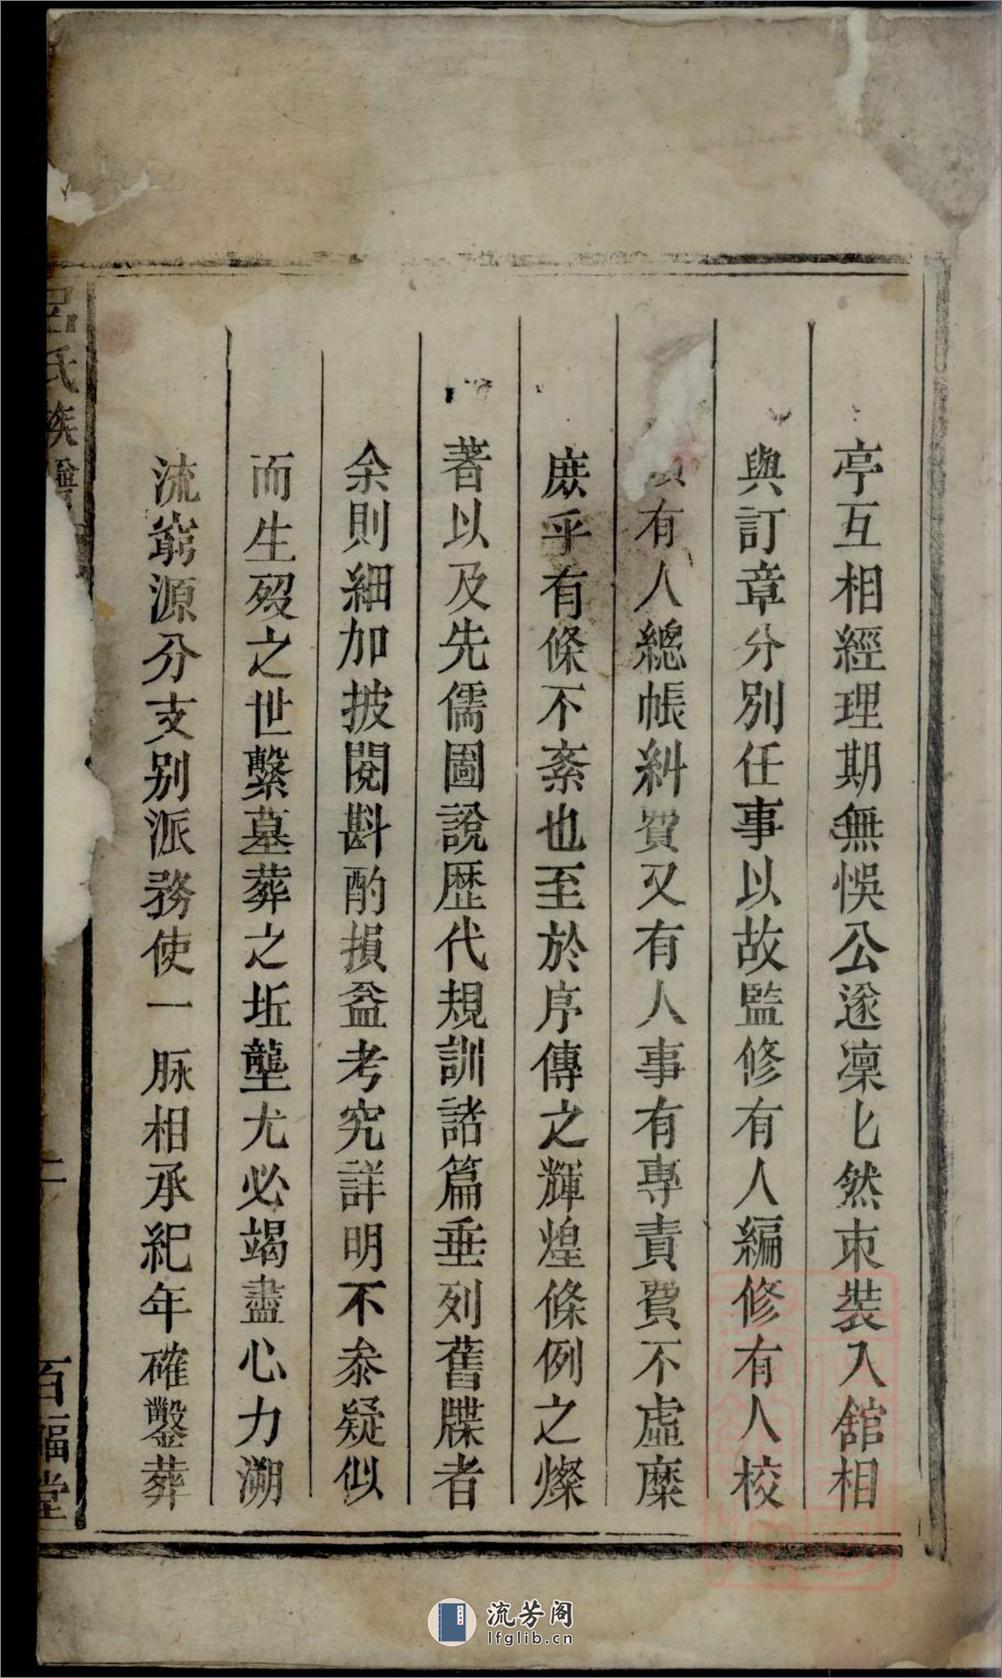 亭互相經理期無悞公遂凜匕然束裝入舘相
與訂章分別任事以故監修有人編修有人校
有人總帳糾費又有人事有專責費不虛糜
庶乎有條不紊也至於序傳之輝煌條例之燦
著以及先儒圖說歷代規訓諸篇垂列舊牒者
余則細加披閱斟酌損益考究詳明不叅疑似
而生歿之世繫墓葬之坵壟尤必竭盡心力溯
流窮源分支别派務使一脉相承紀年確鑿葬
呂氏族譜
百福堂
流芳阁
lfglib.cn